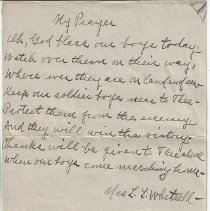 My Prayer
Oh, God bless our boys today.
Watch over them on their way,
Where ever they are on land and sea
Keep our soldier boys near to Thee.
Protect them from the enemy
And they will win the victory
Thanks will be given to Thee alone
When our boys come marching home.
Mrs L. L. Whetsell